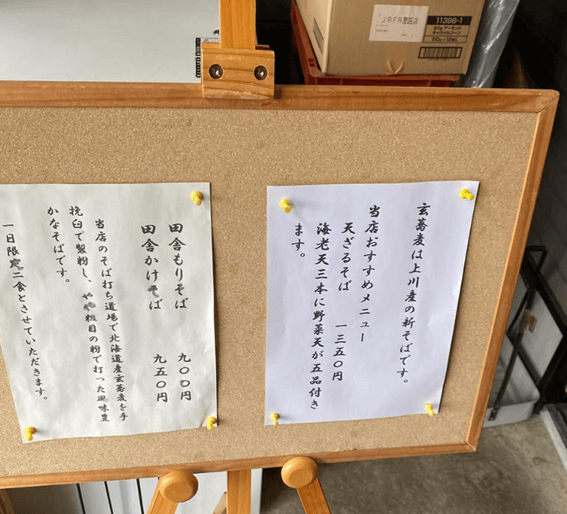 玄蕎麦は上川産の新そばです。
当店おすすめメニュー
天ざるそば 一三五〇円
海老天三本に野菜天が五品付き
ます。
田舎もりそば 九〇〇円
田舎かけそば 九五〇円
当店のそば打ち道場で北海道産玄蕎麦を手
挽臼で製粉し、やや粗目の粉で打った風味豊
かなそばです。
一日限定二食とさせていただきます。
11398-1